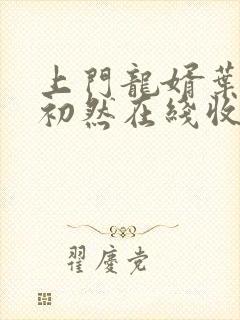 上門龍婿葉
初然在綫收
翟慶党